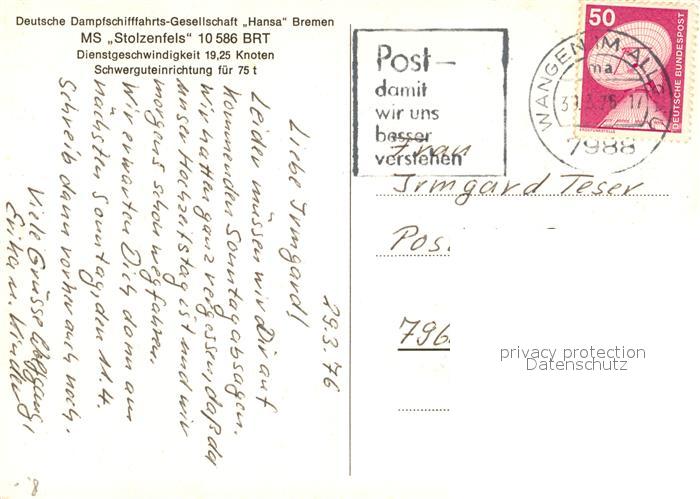 Deutsche Dampfschifffahrts-Gesellschaft „Hansa" Bremen
MS „Stolzenfels" 10 586 BRT
Dienstgeschwindigkeit 19,25 Knoten
Schwerguteinrichtung für 75 t
29.3.76
Liebe Irmgard!
Leider müssen wir Dir auf
kommenden Sonntag absagen.
Wir hatten ganz vergessen, daß da
unser Hochzeitstag ist und wir
morgens schon wegfahren.
Wir erwarten Dich dann am
nächsten Sonntag, den 11.4.
Schreib dann vorher auch noch.
Viele Grüsse Wolfgang,
Erika u. Kinder
Post –
damit
wir uns
besser
verstehen
WANGEN IM ALLG
7988
50
DEUTSCHE BUNDESPOST
Frau
Irmgard Teser
Pos
796
privacy protection
Datenschutz